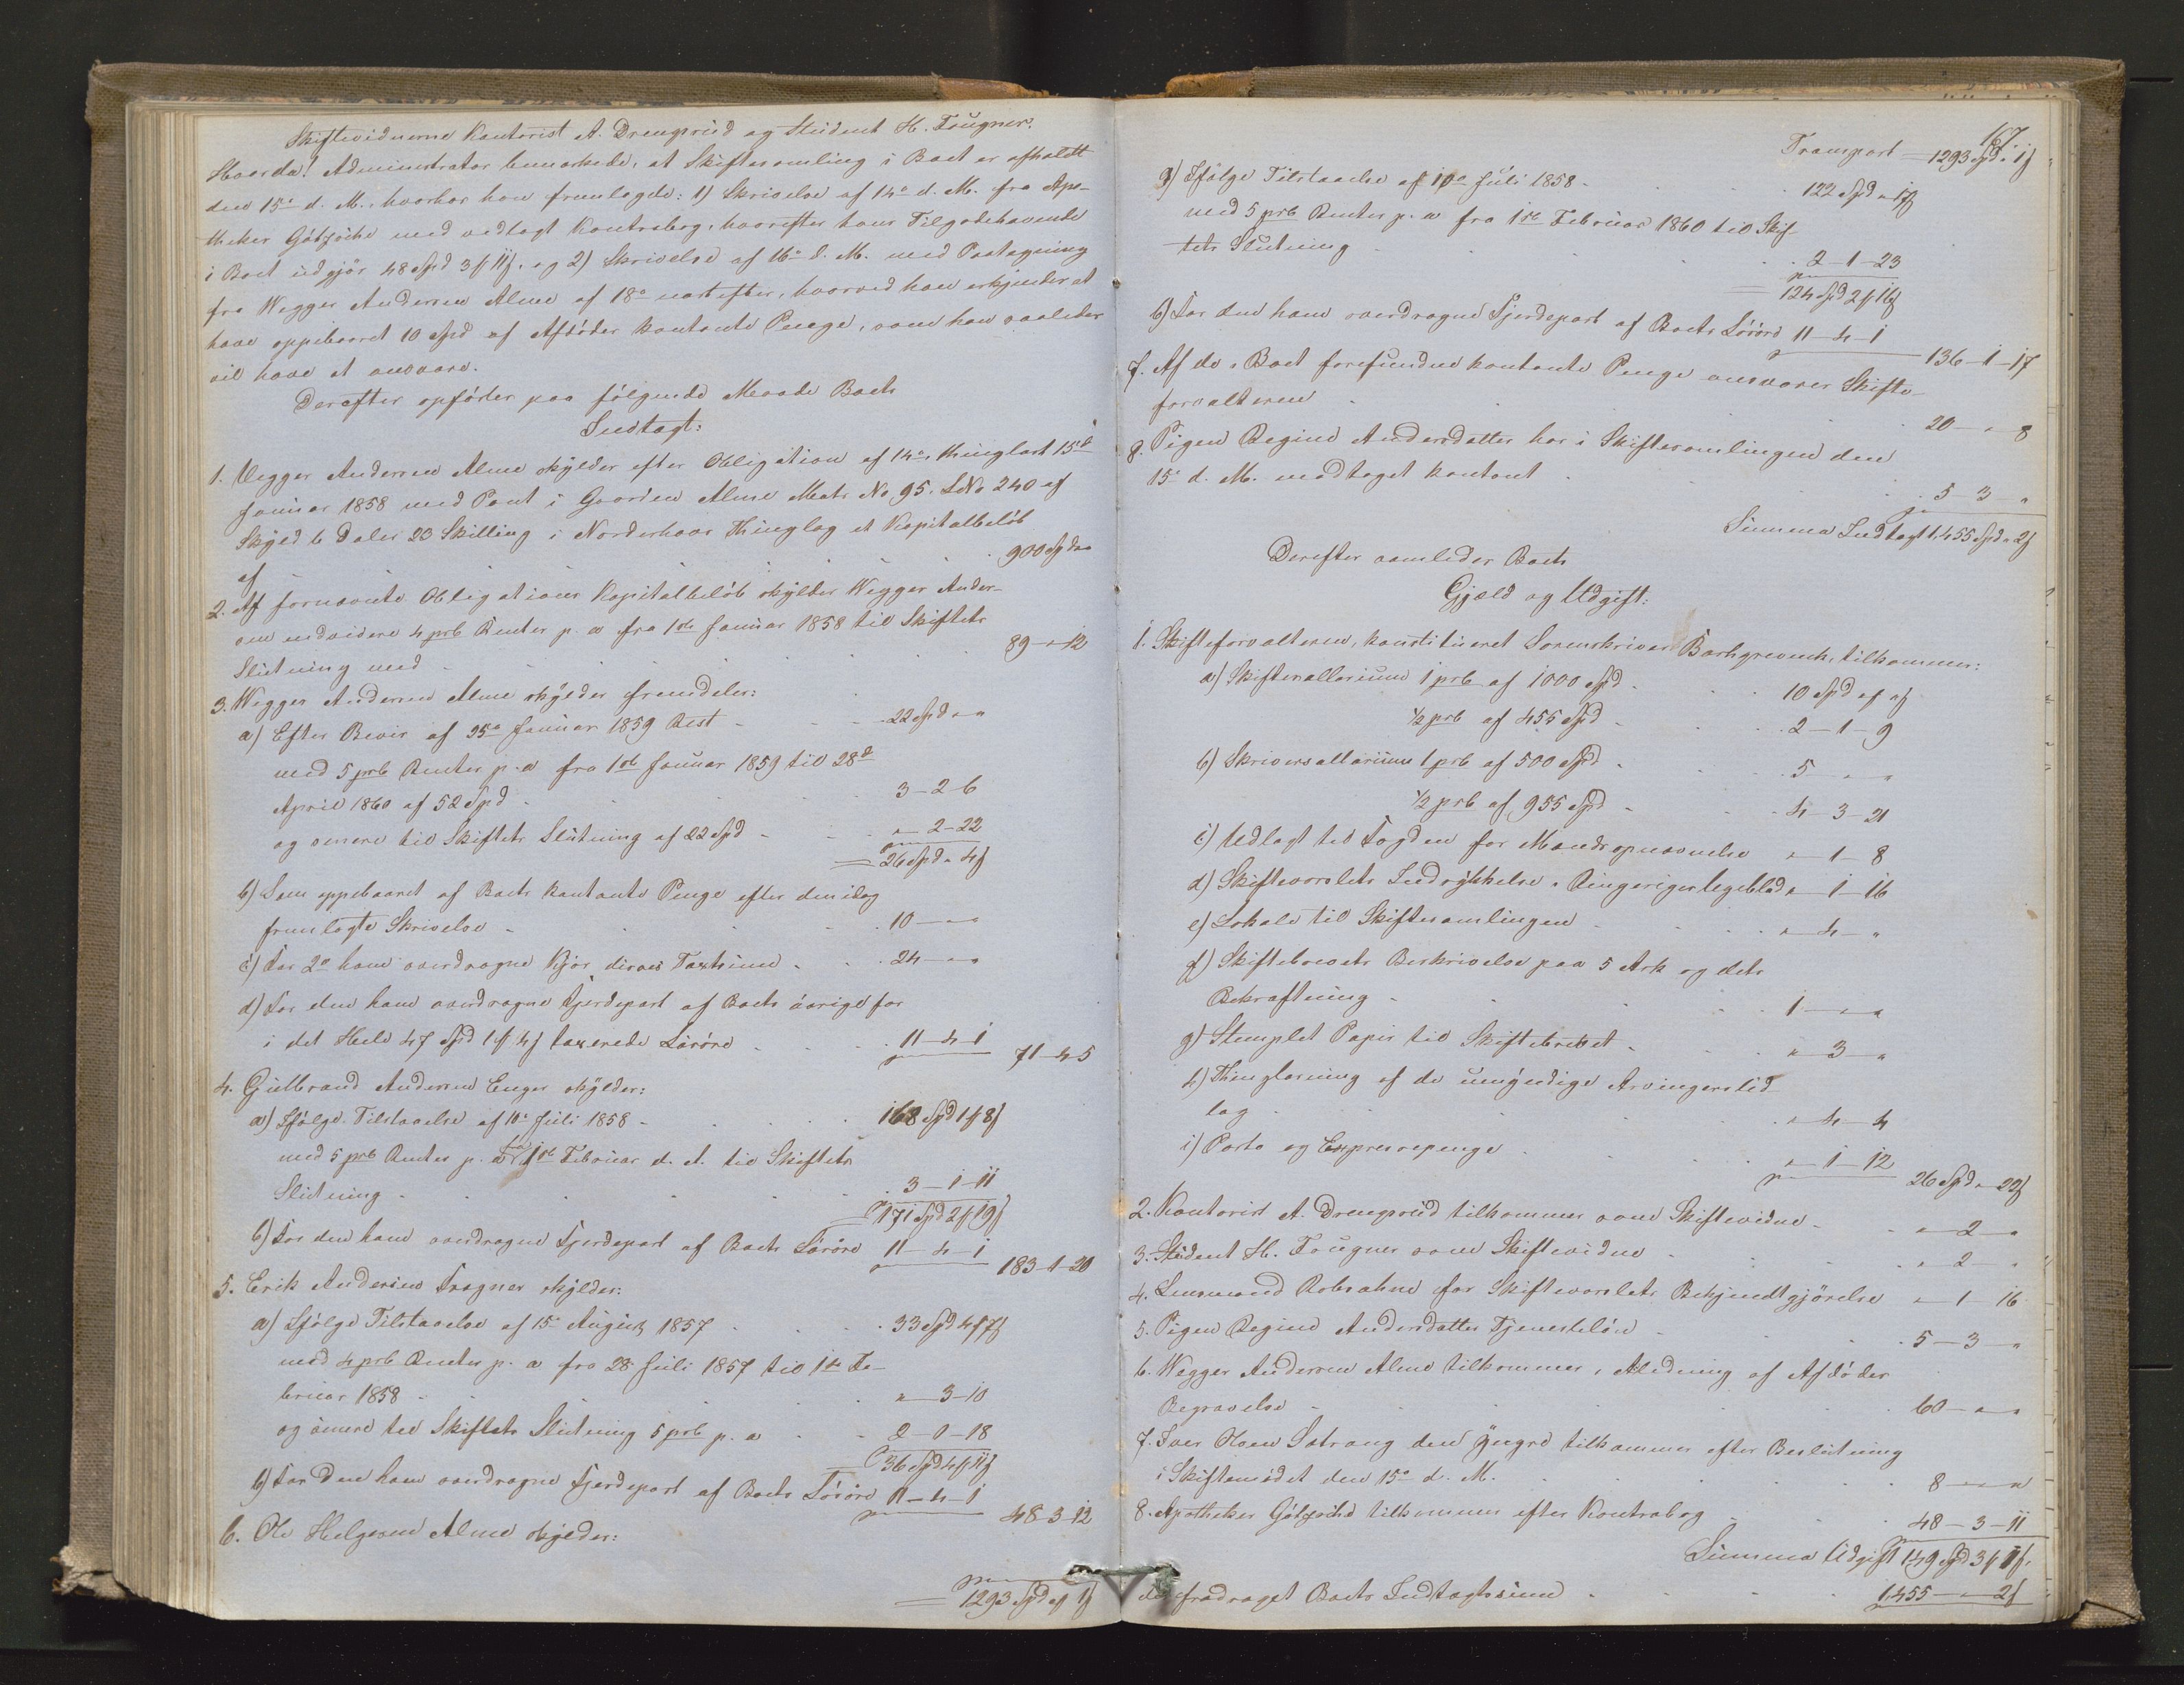 Skiftevidnerne Kontorist A. Drengsrud og Student H. Tougner.
Hvorda! Administrator bemærkede, at Skiftesamling i Boet er afholdt
den 15de d. M., hvorhos han fremlagde: 1) Skrivelse af 14de d. M. fra Apo-
theker Götzsche med vedlagt Kontrabog, hvorefter hans Tilgodehavende
i Boet udgjør 48 Spd 3 ƒ 11 ß, og 2) Skrivelse af 16de d. M. med Paategning
fra Wegger Andersen Alme af 18de næstefter, hvorved han erkjender at
have oppebaaret 10 Spd af Afdødes kontante Penge, som han saaledes
vil have at ansvare.
Derefter opføres paa følgende Maade Boets
Indtægt:
1. Wegger Andersen Alme skylder efter Obligation af 14de, thinglæst 15de
Januar 1858 med Pant i Gaarden Alme Matr. No 95. LNo 240 af
Skyld 6 Daler 23 Skilling i Norderhovs Thinglag et Kapitalbeløb
af 900 Spd " "
2. Af fornævnte Obligations Kapitalbeløb skylder Wegger Ander-
sen endvidere 4 prCt Renter p. a. fra 1ste Januar 1858 til Skiftets
Slutning med 89 - " - 12
3. Wegger Andersen Alme skylder fremdeles:
a) Efter Bevis af 25de Januar 1859 Rest 22 Spd " "
med 5 prCt Renter p. a fra 1ste Januar 1859 til 28de
April 1860 af 52 Spd 3 - 2 - 6
og senere til Skiftets Slutning af 22 Spd " - 2 - 22
= 26 Spd " 4 ß
b) Som oppebaaret af Boets kontante Penge efter den idag
fremlagte Skrivelse 10 - " "
c) For 2de ham overdragne Kjør, disses Taxtsum 24 - " "
d) For den ham overdragne Fjerdepart af Boets øvrige for
i det Hele 47 Spd 1 ƒ 4 ß taxerede Løsøre 11 - 4 - 1 71 - 4 - 5
4. Gulbrand Andersen Enger skylder:
a) Ifølge Tilstaaelse af 10de Juli 1858 168 Spd 1 ƒ 8 ß
med 5 prCt Renter p. a fra 1ste Februar d. A. til Skiftets
Slutning 3 - 1 - 11
171 Spd 2 ƒ 19 ß
b) For den ham overdragne Fjerdepart af Boets Løsøre 11 - 4 - 1 183 - 1 - 20
5. Erik Andersen Fragner skylder:
a) Ifølge Tilstaaelse af 15de August 1857 33 Spd 4 ƒ 7 ß
med 4 prCt Renter p. a fra 28 Juli 1857 til 1ste Fe-
bruar 1858 " - 3 - 10
og senere til Skiftets Slutning 5 prCt p. a 2 - 0 - 18
36 Spd 4 ƒ 11 ß
b) For den ham overdragne Fjerdepart af Boets Løsøre 11 - 4 - 1 48 - 3 - 12
6. Ole Helgesen Alme skylder:
= 1293 Spd " ƒ 1 ß
167.
Transport = 1293 Spd " 1 ß
a) Ifølge Tilstaaelse af 10de Juli 1858 122 Spd " 17 ß
med 5 prCt Renter p. a fra 1ste Februar 1860 til Skif-
tets Slutning 2 - 1 - 23
= 124 Spd 2 ƒ 16 ß
b) For den ham overdragne Fjerdepart af Boets Løsøre 11 - 4 - 1 136 - 1 - 17
7. Af de i Boet forefundne kontante Penge ansvarer Skifte-
forvalteren 20 - " - 8
8. Pigen Regine Andersdatter har i Skiftesamlingen den
15de d. M. modtaget kontant 5 - 3 - "
Summa Indtægt 1455 Spd " 2 ß
Derefter anmeldes Boets
Gjæld og Udgift:
1. Skifteforvalteren, konstitueret Sorenskriver Barhgrevinck, tilkommer:
a) Skiftesallarium 1 prCt af 1000 Spd 10 Spd " ƒ " ß
½ prCt af 455 Spd 2 - 1 - 9
b) Skriversallarium 1 prCt af 500 Spd 5 " "
½ prCt af 955 Spd 4 - 3 - 21
c) Udlagt til Fogden for Mændsopnævnelse " - 1 - 8
d) Skiftevarslets Indrykkelse i Ringeriges Ugeblad " - 1 - 16
e) Lokale til Skiftesamlingen " - 4 - "
f) Skiftebrevets Beskrivelse paa 5 Ark og dets
Bekræftning 1 - " "
g) Stemplet Papir til Skiftebrevet " - 3 - "
h) Thinglæsning af de umyndige Arvingers Ud-
læg " - 4 - 4
i) Porto og Exprespenge " - 1 - 12 26 Spd " 22 ß
2. Kontorist A. Drengsrud tilkommer som Skiftevidne " - 2 - "
3. Student H. Tougner som Skiftevidne " - 2 - "
4. Lensmand Robsahm for Skiftevarslets Bekjendtgjørelse " - 1 - 16
5. Pigen Regine Andersdatter Tjenesteløn 5 - 3 - "
6. Wegger Andersen Alme tilkommer i Anledning af Afdødes
Begravelse 60 - " "
7. Iver Olsen Sætrang den yngre tilkommer efter Beslutning
i Skiftemødet den 15de d. M. 8 - " "
8. Apotheker Götzsche tilkommer efter Kontrabog 48 - 3 - 11
Summa Udgift 149 Spd 3 ƒ 1 ß.
fradraget Boets Indtægtssum 1455 - " 2 ß